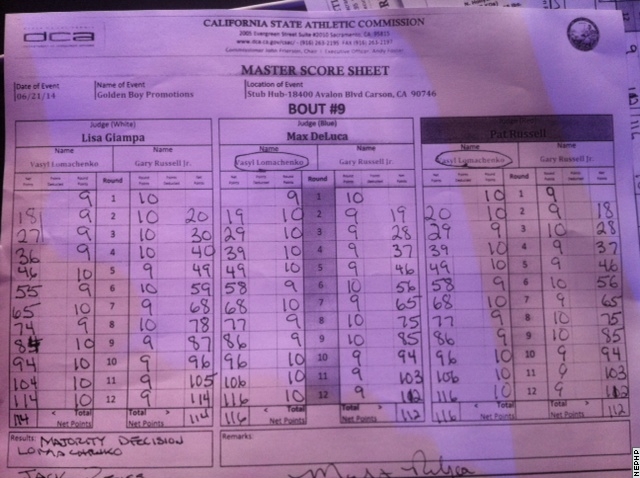 dca
CALIFORNIA STATE ATHLETIC COMMISSION
2005 Evergreen Street Suite #2010 Sacramento, CA. 95815
MASTER SCORE SHEET
Date of Event Name of Event Location of Event
06/21/14 Golden Boy Promotions Stub Hub-18400 Avalon Blvd Carson, CA 90746
BOUT #9
Judge (White) Judge (Blue)
Lisa Giampa Max DeLuca Pat Russell
Name Name Name Name Name Name
Vasyl Lomachenko Gary Russell Jr. Vasyl Lomachenko Gary Russell Jr. Vasyl Lomachenko Gary Russell Jr.
Net Points Points Deducted Round Points Round Round Points Points Deducted Net Points Net Points Points Deducted Round Points Round Round Points Points Deducted Net Points Net Points Points Deducted Round Points Round Round Points Points Deducted Net Points
9 1 10 9 1 10 10 1 9
18 9 2 10 20 19 10 2 9 19 20 10 2 9 18
27 9 3 10 30 29 10 3 9 28 29 9 3 10 28
36 9 4 10 40 39 10 4 9 37 39 10 4 9 37
46 10 5 9 49 49 10 5 9 46 49 10 5 9 46
55 9 6 10 59 58 9 6 10 56 58 9 6 10 56
65 10 7 9 68 68 10 7 9 65 68 10 7 9 65
74 9 8 10 78 77 9 8 10 75 77 9 8 10 75
84 10 9 9 87 86 9 9 10 85 86 9 9 10 85
94 10 10 9 96 96 10 10 9 94 96 10 10 9 94
104 10 11 9 105 106 10 11 9 103 106 10 11 9 103
114 10 12 9 114 116 10 12 9 112 116 10 12 9 112
114 < Total Net Points Total > Net Points 114 116 < Total Net Points Total > Net Points 112 116 < Total Net Points Total > Net Points 112
Results: MAJORITY DECISION Remarks:
LOMACHENKO
NEPHP